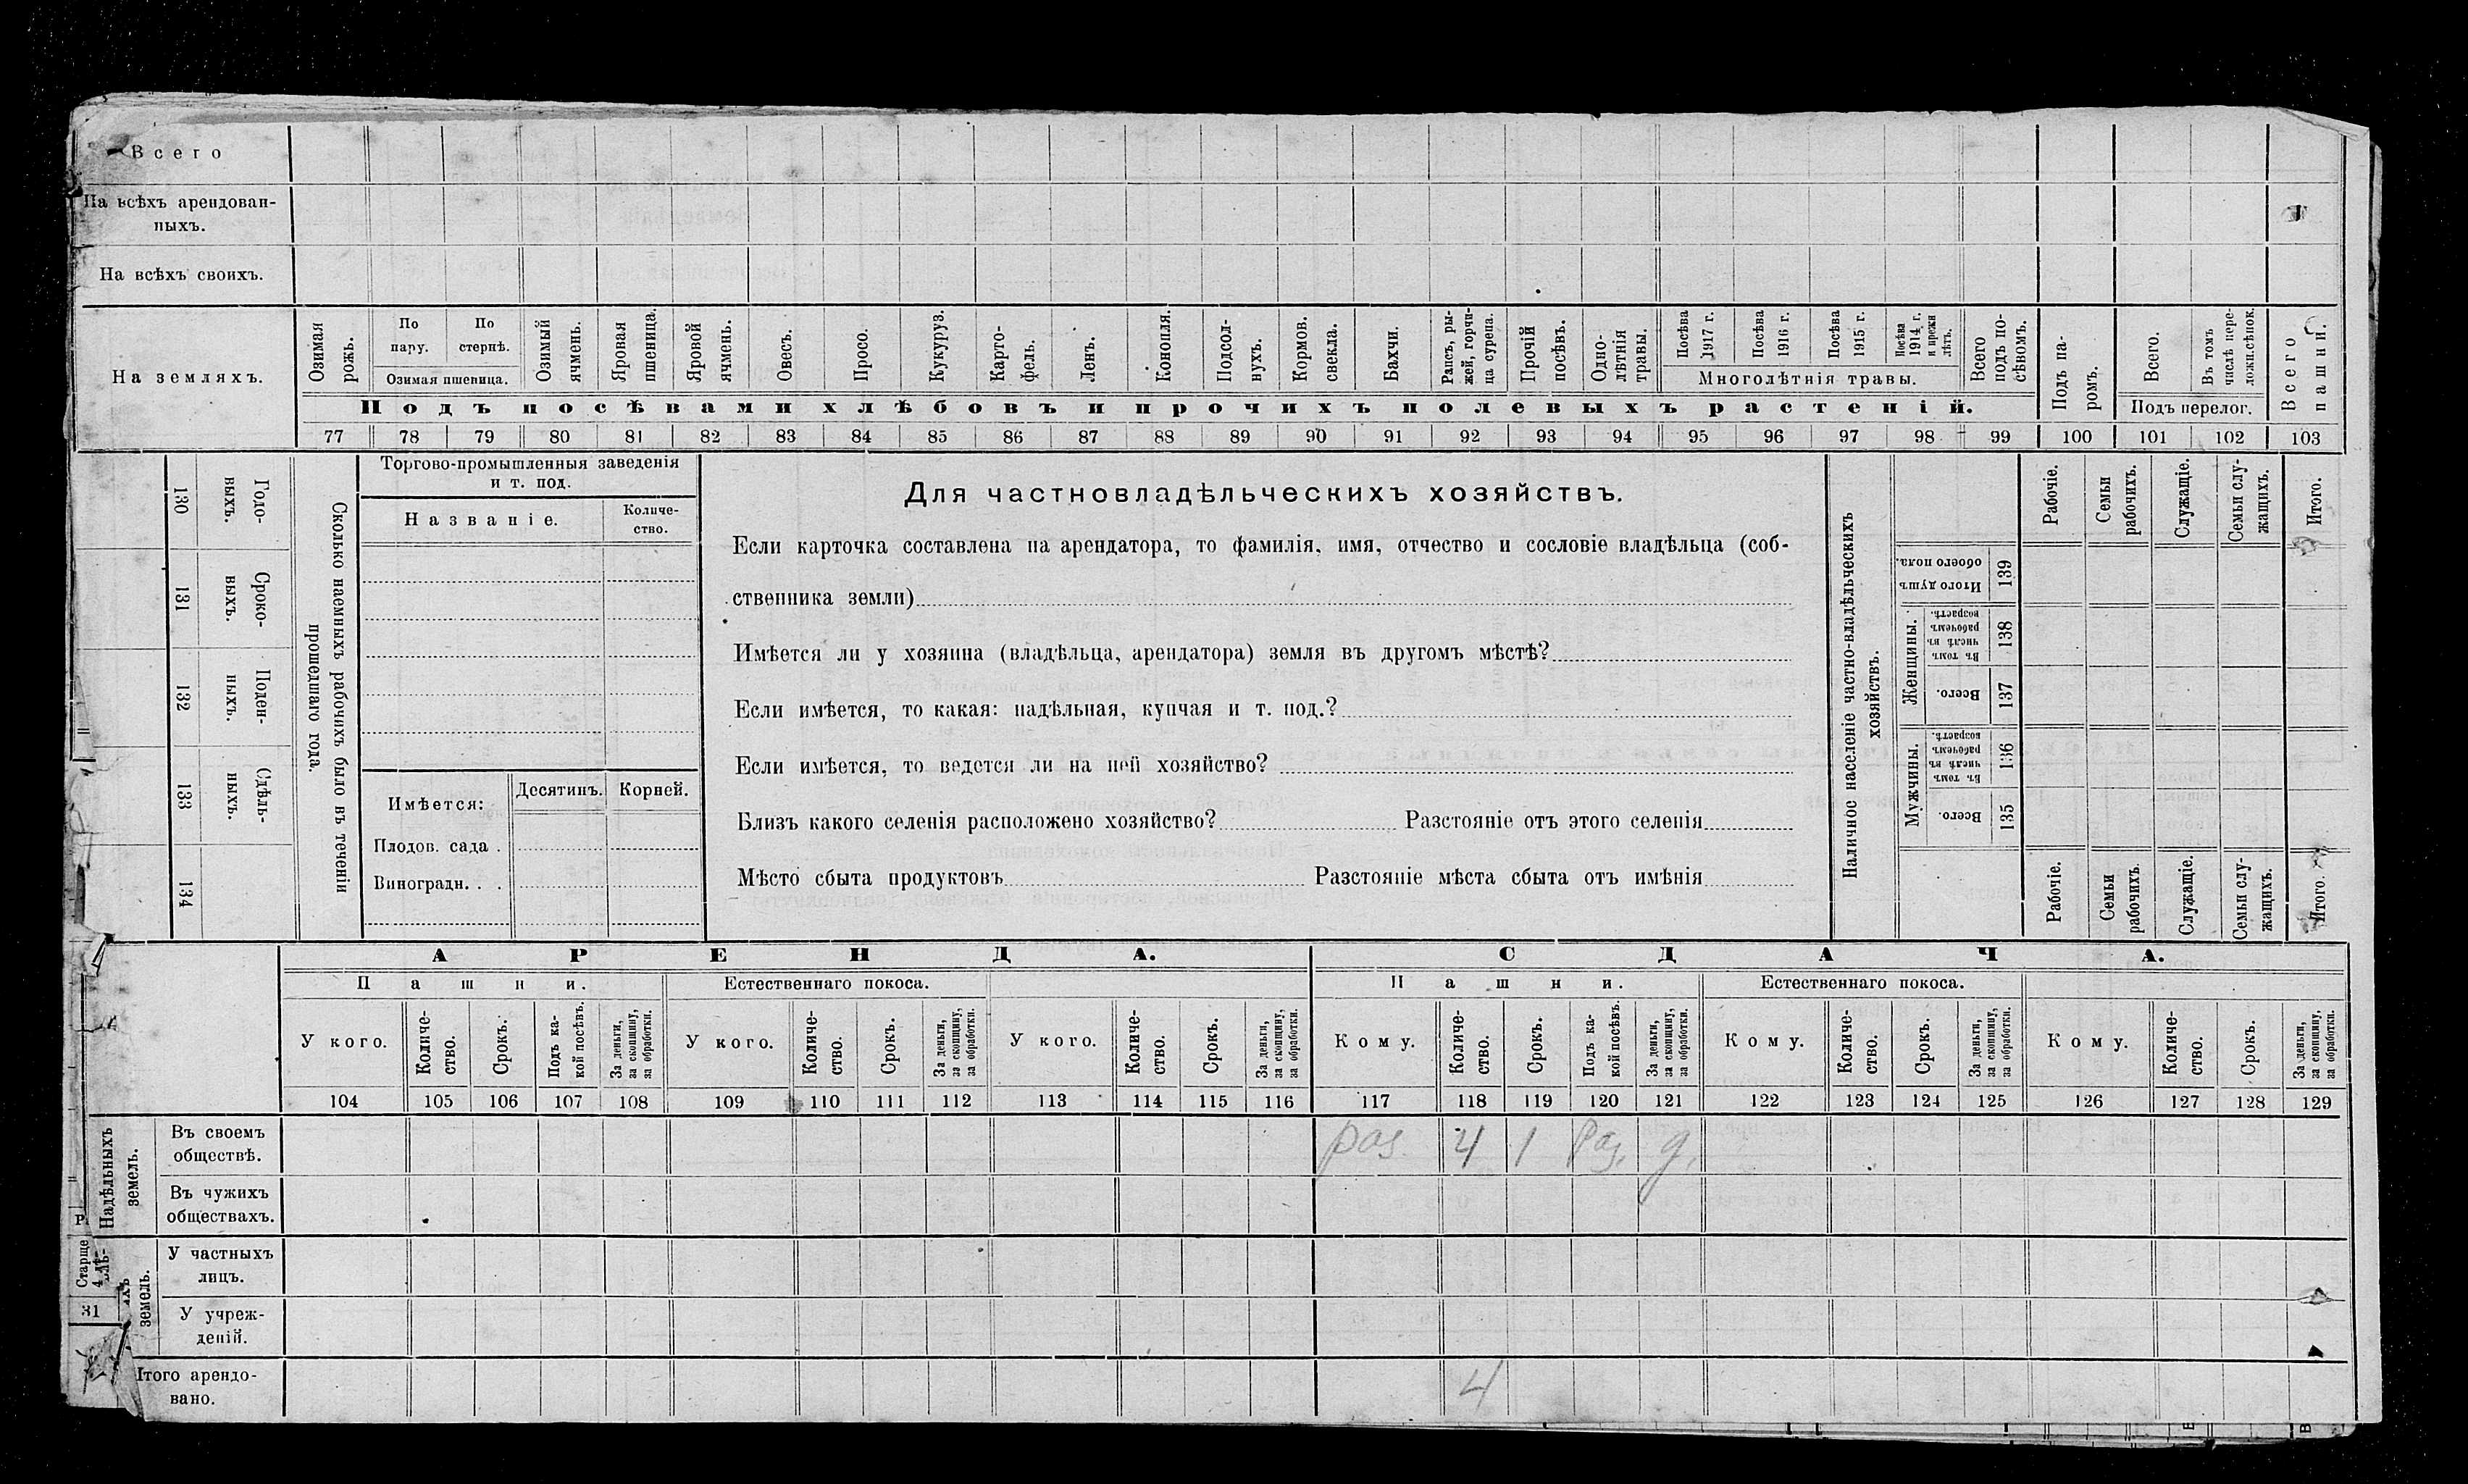 Всего
На всѣхъ арендован-
ныхъ.
На всѣхъ своихъ.
На земляхъ.
Озимая рожь.
По пару.
По стернѣ.
Озимая пшеница.
Озимый ячмень.
Яровая пшеница.
Яровой ячмень.
Овесъ.
Просо.
Кукуруз.
Карто-
фель.
Ленъ.
Конопля.
Подсол-
нухъ.
Кормов.
свекла.
Бахчи.
Рапсъ, ры-
жей, горчи-
ца сурепа.
Прочій
посѣвъ.
Одно-
лѣтнія
травы.
Посѣва
1917 г.
Посѣва
1916 г.
Посѣва
1915 г.
Посѣва
1914 г.
и прежн
лѣтъ.
Многолѣтнія травы.
Всего
подъ по-
сѣвомъ.
Подъ па-
ромъ.
Всего.
Въ томъ
числѣ пере-
ложн.сѣнок.
Подъ перелог.
Всего
пашни.
Подъ посѣвами хлѣбовъ и прочихъ полевыхъ растеній.
77 78 79 80 81 82 83 84 85 86 87 88 89 90 91 92 93 94 95 96 97 98 99 100 101 102 103
130
Годо-
выхъ.
131
Сроко-
выхъ.
132
Поден-
ныхъ.
133
Сдѣль-
ныхъ.
134
Сколько наемныхъ рабочихъ было въ теченіи
прошедшаго года.
Торгово-промышленныя заведенія
и т. под.
Названіе.
Количе-
ство.
Имѣется:
Десятинъ.
Корней.
Плодов. сада .
Виноградн. . .
Для частновладѣльческихъ хозяйствъ.
Если карточка составлена на арендатора, то фамилія, имя, отчество и сословіе владѣльца (соб-
ственника земли)
Имѣется ли у хозяина (владѣльца, арендатора) земля въ другомъ мѣстѣ?
Если имѣется, то какая: надѣльная, купчая и т. под.?
Если имѣется, то ведется ли на ней хозяйство?
Близъ какого селенія расположено хозяйство? Разстояніе отъ этого селенія
Мѣсто сбыта продуктовъ Разстояніе мѣста сбыта отъ имѣнія
Наличное населеніе частно-владѣльческихъ
хозяйствъ.
Рабочіе.
Семьи
рабочихъ.
Служащіе.
Семьи слу-
жащихъ.
Итого.
Итого душъ
обоего пола.
139
Женщины.
Въ томъ
числѣ въ
рабочемъ
возрастѣ.
138
Всего.
137
Мужчины.
Въ томъ
числѣ въ
рабочемъ
возрастѣ.
136
Всего.
135
Рабочіе.
Семьи
рабочихъ.
Служащіе.
Семьи слу-
жащихъ.
Итого.
АРЕНДА.
СДАЧА.
Пашни.
Естественнаго покоса.
Пашни.
Естественнаго покоса.
У кого.
Количе-
ство.
Срокъ.
Подъ ка-
кой посѣвъ.
За деньги,
за скопщину,
за обработки.
У кого.
Количе-
ство.
Срокъ.
За деньги,
за скопщину,
за обработки.
У кого.
Количе-
ство.
Срокъ.
За деньги,
за скопщину,
за обработки.
Кому.
Количе-
ство.
Срокъ.
Подъ ка-
кой посѣвъ.
За деньги,
за скопщину,
за обработки.
Кому.
Количе-
ство.
Срокъ.
За деньги,
за скопщину,
за обработки.
Кому.
Количе-
ство.
Срокъ.
За деньги,
за скопщину,
за обработки.
104 105 106 107 108 109 110 111 112 113 114 115 116 117 118 119 120 121 122 123 124 125 126 127 128 129
Надѣльныхъ
земель.
Въ своемъ
обществѣ.
раз. 4 1 Раз. д.
Въ чужихъ
обществахъ.
Старше
31
земель.
У частныхъ
лицъ.
У учреж-
деній.
Итого арендо-
вано.
4